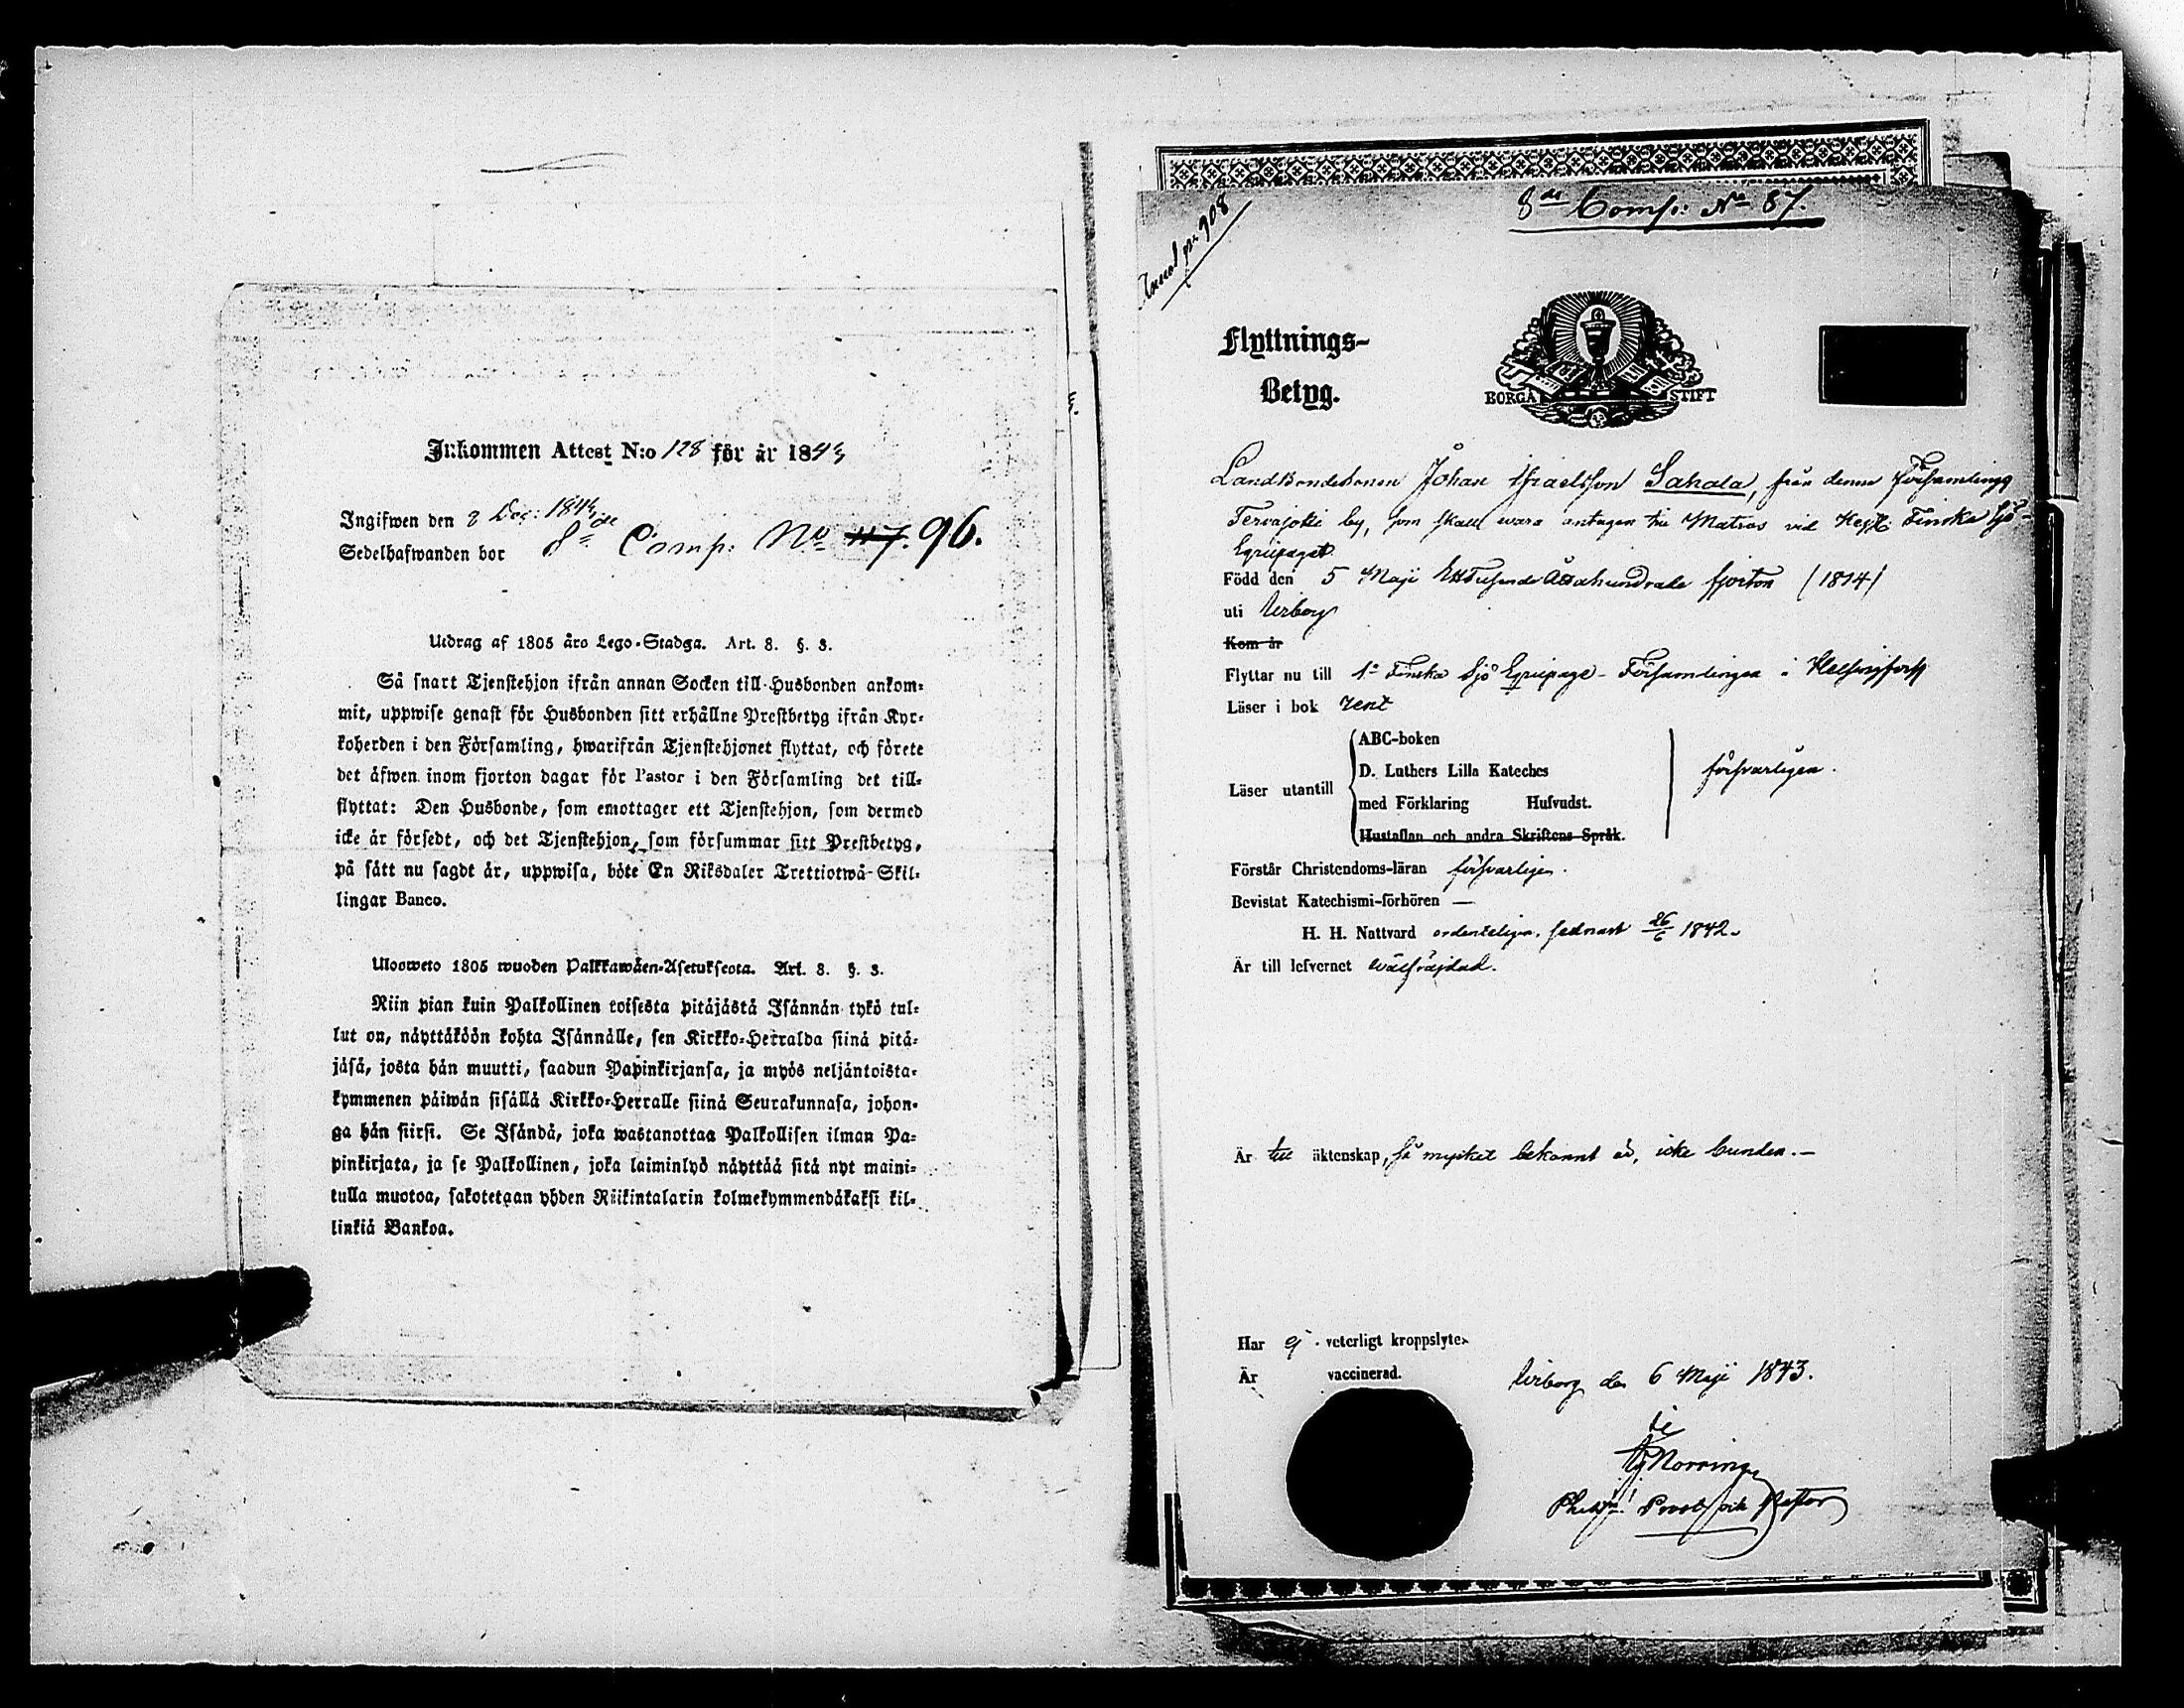 Inkommen Attest N:o 128 för år 1843
Ingifwen den 2 Dec: 1843
Sedelhafwanden bor 8de Comp: No 117. 96.
Utdrag af 1805 års Lego-Stadga. Art. 8. §. 3.
Så snart Tjenstehjon ifrån annan Socken till Husbonden ankom-
mit, uppwise genast för Husbonden sitt erhållne Prestbetyg ifrån Kyr-
koherden i den Församling, hwarifrån Tjenstehjonet flyttat, och förete
det äfwen inom fjorton dagar för Pastor i den Församling det till-
flyttat: Den Husbonde, som emottager ett Tjenstehjon, som dermed
icke är försedt, och det Tjenstehjon, som försummar sitt Prestbetyg,
på sätt nu sagdt är, uppwisa, böte En Riksdaler Trettiotwå Skil-
lingar Banco.
Ulosweto 1805 wuoden Palkkawäen-Asetuksesta. Art. 8. §. 3.
Niin pian kuin Palkollinen toisesta pitäjästä Isännän tykö tul-
lut on, näyttäköön kohta Isännälle, sen Kirkko-Herralda siinä pitä-
jäsä, josta hän muutti, saadun Papinkirjansa, ja myös neljäntoista-
kymmenen päiwän sisällä Kirkko-Herralle siinä Seurakunnasa, johon-
ga hän siirsi. Se Isändä, joka wastanottaa Palkollisen ilman Pa-
pinkirjata, ja se Palkollinen, joka laiminlyö näyttää sitä nyt maini-
tulla muotoa, sakotetaan yhden Riikintalarin kolmekymmendäkaksi kil-
linkiä Bankoa.
8de Comp: No 87.
908
Flyttnings-
Betyg.
BORGÅ STIFT
Landbondesonen Johan Israelsson Sahala, från denne Församlings
Tervajoki by, som skall wara antagen till Matros vid Kejs: Finska Sjö-
Equipaget
Född den 5 Maji Ett Tusende Åttahundrade fjorton (1814)
uti Wiborg
Kom år
Flyttar nu till 1a Finska Sjö Equipage-Församlingen i Helsingfors
Läser i bok rent
ABC-boken
D. Luthers Lilla Kateches försvarligen.
Läser utantill
med Förklaring Hufvudst.
Hustaflan och andra Skriftens Språk.
Förstår Christendoms-läran försvarligen.
Bevistat Katechismi-förhören —
H. H. Nattvard ordenteligen, sednast 26/6 1842.
Är till lefvernet wälfrejdad.
Är till äktenskap, så mycket bekannt är, icke bunden.—
Har ej veterligt kroppslyte.
Är vaccinerad.
Wiborg den 6 Maji 1843.
Norring
Prost och Pastor